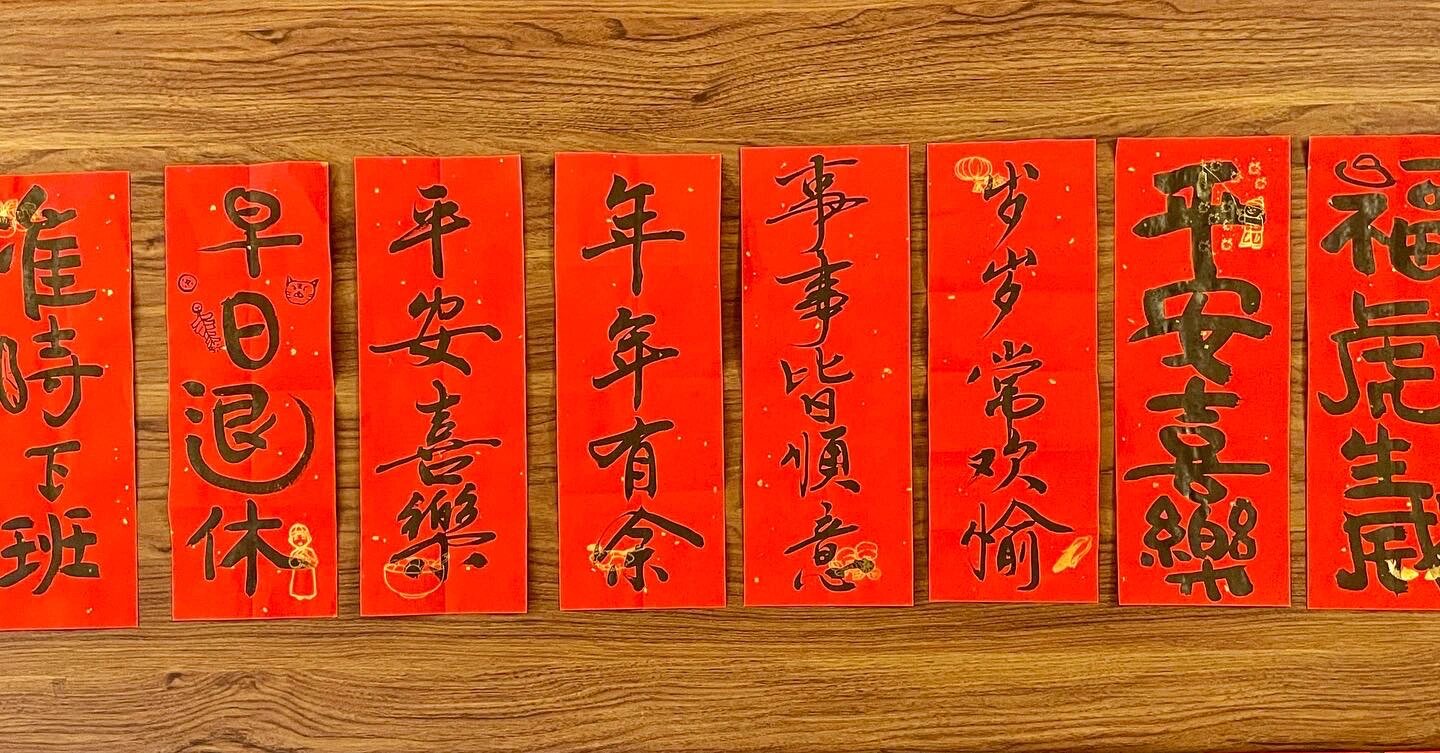 准時下班
早日退休
平安喜樂
年年有余
事事皆順意
岁岁常欢愉
平安喜樂
福虎生威